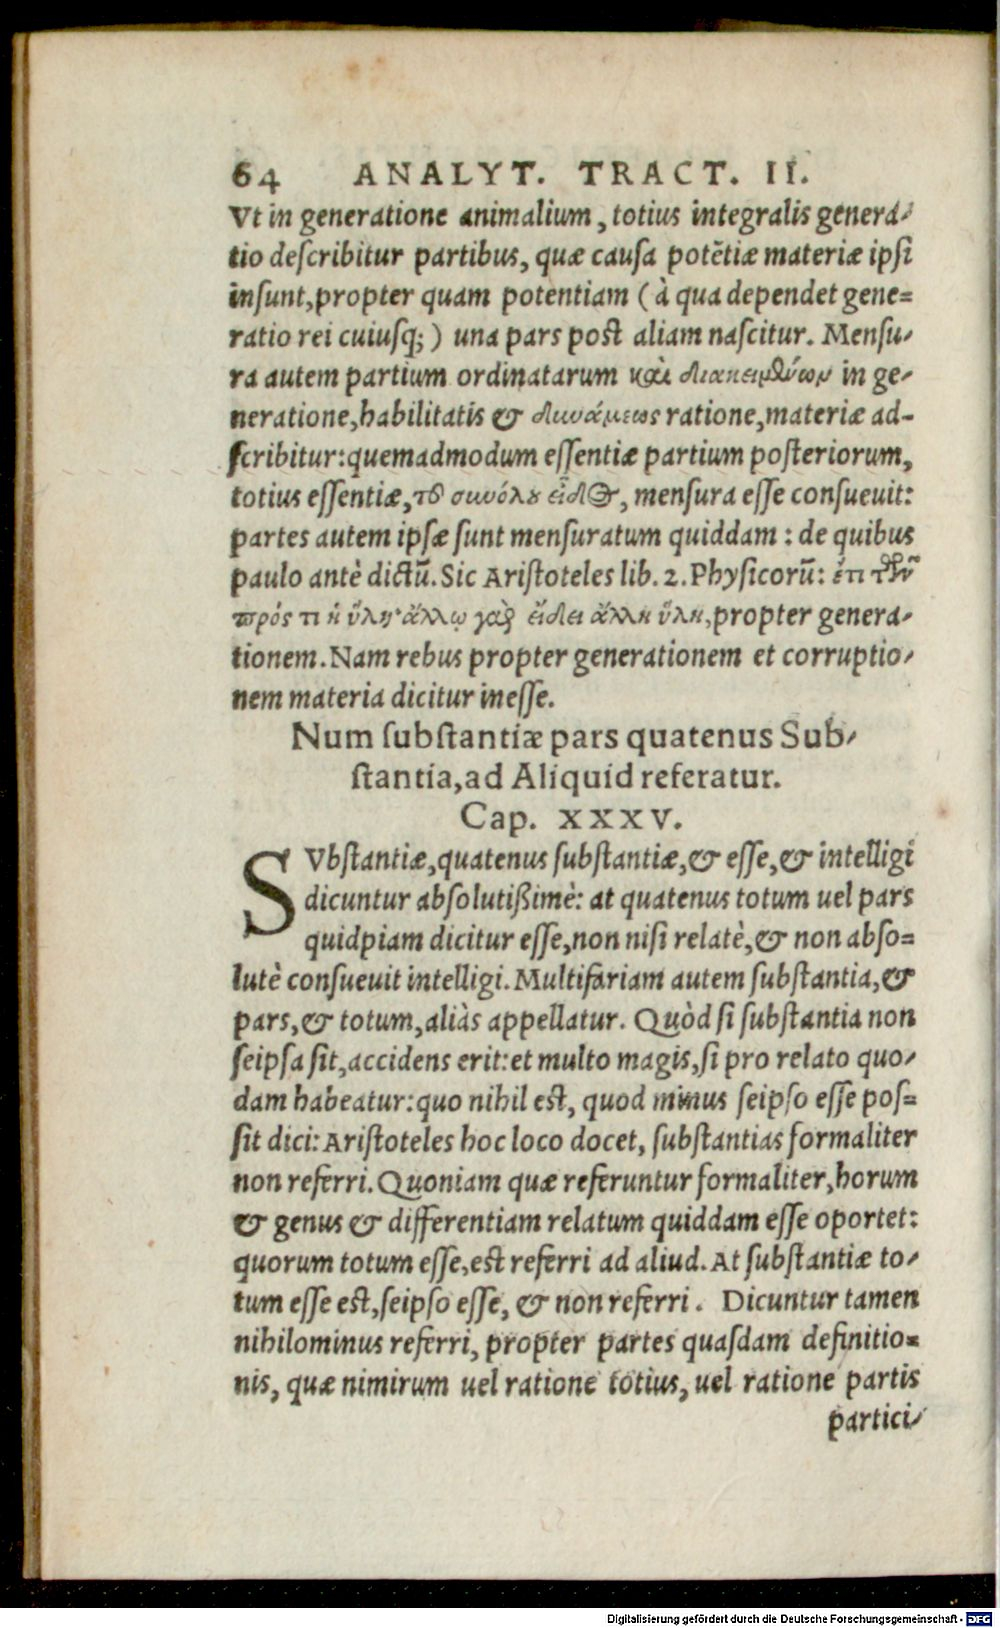 64 ANALYT. TRACT. II.
Vt in generatione animalium, totius integralis genera-
tio describitur partibus, quæ causa potẽtiæ materiæ ipsi
insunt, propter quam potentiam (à qua dependet gene=
ratio rei cuiusq;) una pars post aliam nascitur. Mensu-
ra autem partium ordinatarum καὶ διακειμένων in ge-
neratione, habilitatis & δυνάμεως ratione, materiæ ad-
scribitur: quemadmodum essentiæ partium posteriorum,
totius essentiæ, τοῦ συνόλου εἶδος, mensura esse consueuit:
partes autem ipsæ sunt mensuratum quiddam: de quibus
paulo antè dictũ. Sic Aristoteles lib. 2. Physicorũ: ἔτι τῶν
πρός τι ἡ ὕλη· ἄλλῳ γὰρ εἴδει ἄλλη ὕλη, propter genera-
tionem. Nam rebus propter generationem et corruptio-
nem materia dicitur inesse.
Num substantiæ pars quatenus Sub-
stantia, ad Aliquid referatur.
Cap. XXXV.
SVbstantiæ, quatenus substantiæ, & esse, & intelligi
dicuntur absolutißimè: at quatenus totum uel pars
quidpiam dicitur esse, non nisi relatè, & non abso=
lutè consueuit intelligi. Multifariam autem substantia, &
pars, & totum, aliàs appellatur. Quòd si substantia non
seipsa sit, accidens erit: et multo magis, si pro relato quo-
dam habeatur: quo nihil est, quod minus seipso esse pos=
sit dici: Aristoteles hoc loco docet, substantias formaliter
non referri. Quoniam quæ referuntur formaliter, horum
& genus & differentiam relatum quiddam esse oportet:
quorum totum esse, est referri ad aliud. At substantiæ to-
tum esse est, seipso esse, & non referri. Dicuntur tamen
nihilominus referri, propter partes quasdam definitio=
nis, quæ nimirum uel ratione totius, uel ratione partis
partici-
Digitalisierung gefördert durch die Deutsche Forschungsgemeinschaft - DFG